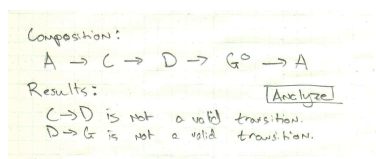 Composition:
A → C → D → G° → A
Results:
Analyze
C→D is not a valid transition.
D→G is not a valid transition.